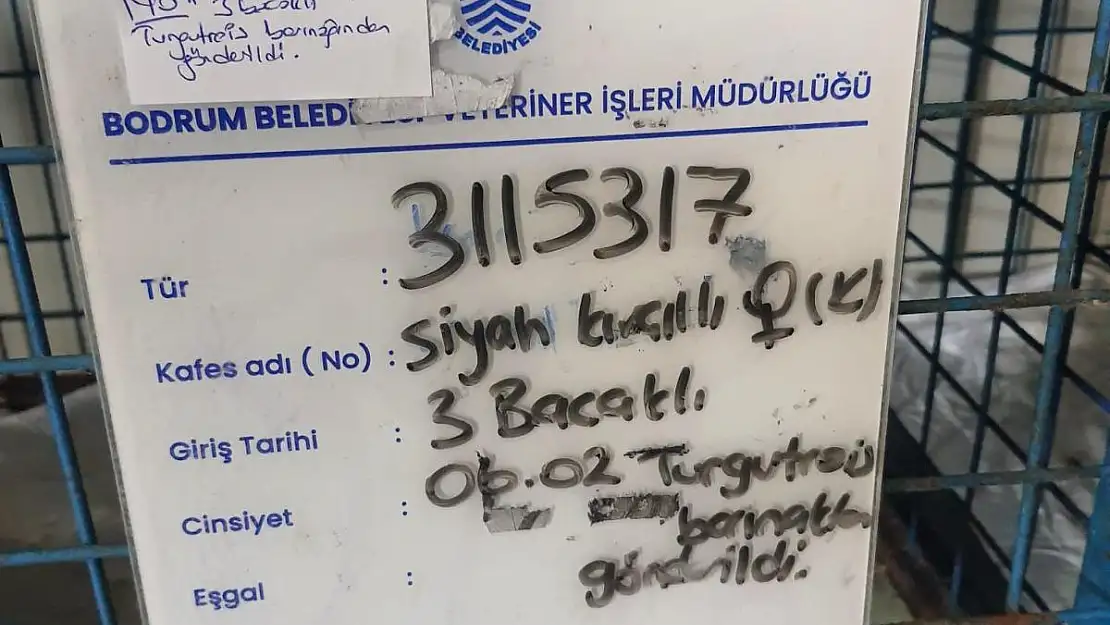 3 Bacaklı
Turgutreis barınağından
gönderildi.
BELEDİYESİ
BODRUM BELEDİYESİ VETERİNER İŞLERİ MÜDÜRLÜĞÜ
3115317
Tür :
siyah kırçıllı ♀ (K)
Kafes adı ( No) :
3 Bacaklı
Giriş Tarihi :
06.02 Turgutreis
Cinsiyet :
barınaktan
gönderildi.
Eşgal :